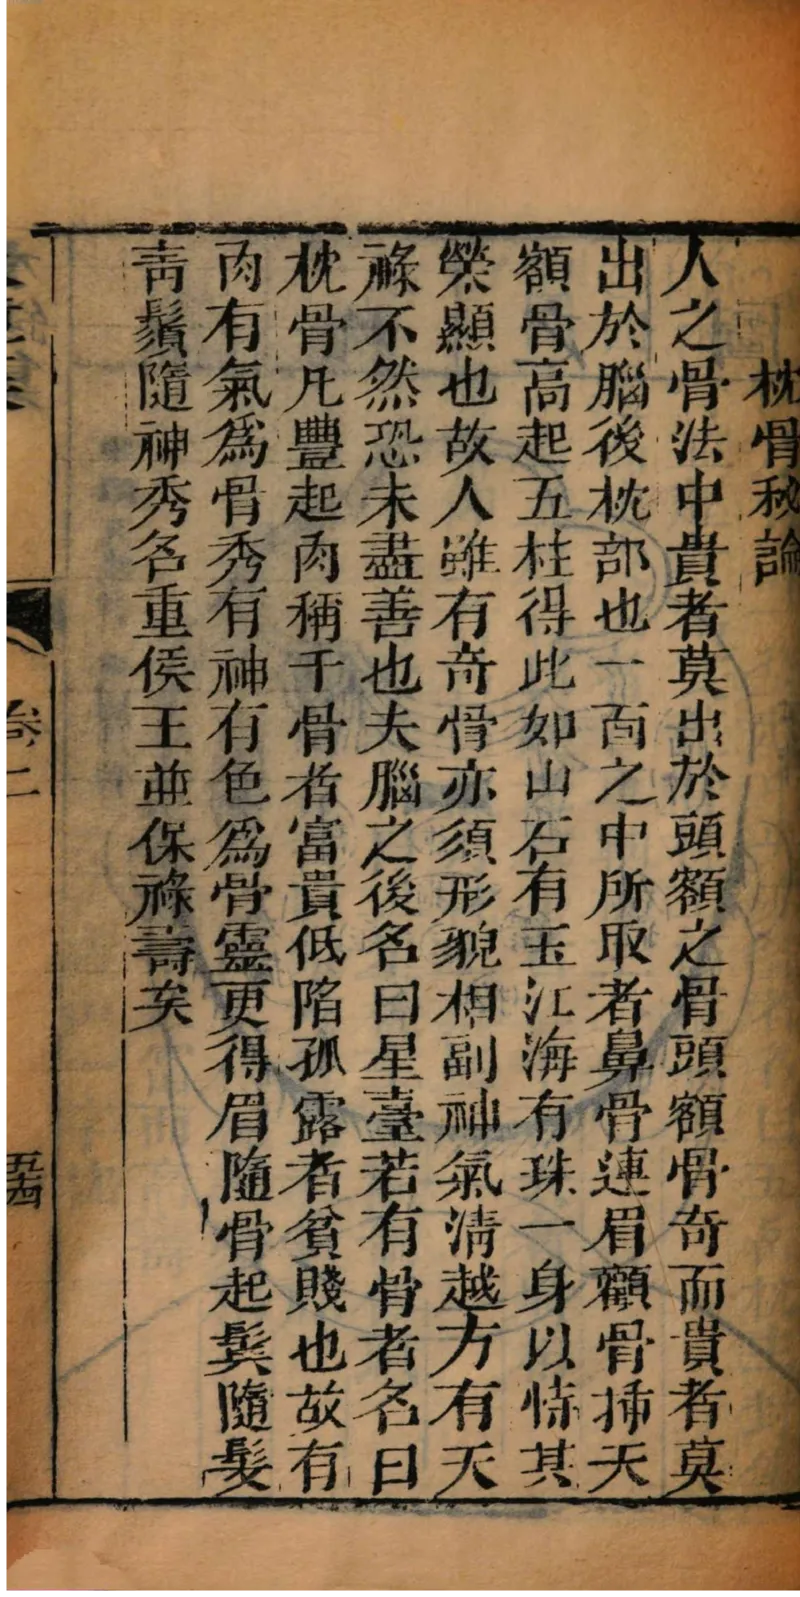 枕骨秘論
人之骨法中貴者莫出於頭額之骨頭額骨奇而貴者莫
出於腦後枕部也一面之中所取者鼻骨連眉顴骨揷天
額骨高起五柱得此如山石有玉江海有珠一身以恃其
榮顯也故人雖有奇骨亦須形貌相副神氣淸越方有天
祿不然恐未盡善也夫腦之後名曰星臺若有骨者名曰
枕骨凡豐起肉稱干骨者富貴低陷孤露者貧賤也故有
肉有氣爲骨秀有神有色爲骨靈更得眉隨骨起鬓隨髮
靑鬚隨神秀名重侯王並保祿壽矣
卷二
五十四